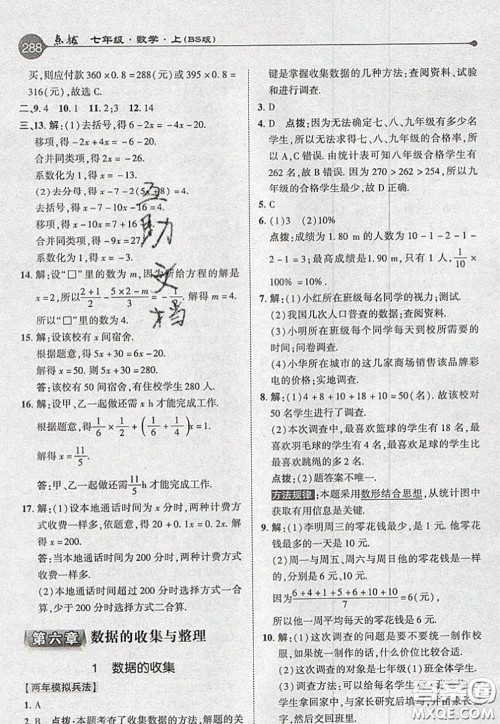 288 点拨 七年级·数学·上(BS版)
买,则应付款 360×0.8=288(元)或 395×0.8=
316(元),故选 C.
二、9.4 10.1 11.2 12.14
三、13.解:(1)去括号,得 6-2x=-4x-4
移项,得-2x+4x=-4-6
合并同类项,得 2x=-10
系数化为 1,得 x=-5
(2)去分母,得 x-7-2(5x+8)=4
去括号,得 x-7-10x-16=4.
移项,得 x-10x=4+7+16.
合并同类项,得-9x=27.
系数化为 1,得 x=-3.
14.解:设“□”里的数为 m,因为所给方程的解是
x=2,所以
所以“□”里的数为 4.
15.解:设该校有 x 间宿舍.
根据题意,得 5x+30=6x-20.
解得 x=50.
答:该校有 50 间宿舍,并有住校学生 280 人.
16.解:设甲、乙一起做还需要 x h 才能完成工作.
根据题意,得 1/6×1/2+(1/6+1/4)x=1.
解得 x=11/5.
答:甲、乙一起做还需要 11/5 h 才能完成工作.
17.解:(1)设本地通话时间为 x 分时,两种计费方
式收费一样多,依题意,得 0.3x=20+0.2x,
解得 x=200.
答:当本地通话时间为 200 分时,两种计费方
式收费一样多.
(2)当本地通话时间小于 200 分时选择方式一
合算,大于 200 分时选择方式二合算.
第六章 数据的收集与整理
1 数据的收集
【两年模拟兵法】
1.A
2.B 点拨:本题考查了收集数据的方法,
是掌握收集数据的几种方法:查阅资料、试
验和进行调查.
3.D
4.D 点拨:因为无法确定七、八、九年级有多少名
学生,所以无法判断七、八、九年级的合格率,所
以 A、C 错误.由统计表可知八年级合格的学生有
262 名,故 B 错误.因为九年级合格的学生有
254 名,所以 D 正确.
5.C
6.(1)3 (2)10%
点拨:成绩为 1.80 m 的人数为 10-1-2-3
-2-1=1;最高成绩是 1.90 m,只有 1 人,占 1/10
×100%=10%.
7.解:(1)小红所在班级每名同学的视力;测试.
(2)我国几次人口普查的数据;查阅资料.
(3)小明所在班级每天同学到校所需的时间;
询问.
(4)小华所在城市的这几家商场销售该品牌电
视机的数据;调查.
8.解:(1)4+8+10+18+10=50(名),该校对
50 名学生进行了调查.
(2)本次调查中,最喜欢篮球的学生有 18 名,最
喜欢羽毛球的学生有 4 名,最喜欢足球的有 10
名,最喜欢跳绳的多了 6 名.
点拨:(2)题答案不唯一.
方法规律:本题采用数形结合思想,从统计图中
获取有用的信息是关键.
9.解:(1)李明周三的零花钱最少,是 1 元.周日的
零花钱最多,是 10 元.
(2)周一与周五、周三与周六的零花钱一样多.
(3)李明一周内平均一天的零花钱为
(6+4+1+5+6+5+10)/7=37/7(元).
10.解:(1)要调查的问题是是否需要统一制作校
服,如果要统一制作,那么什么价位,什么样式
比较合适.
(2)调查的对象是七年级(1)班全体学生.
与家长开展调查,然后
互助文档